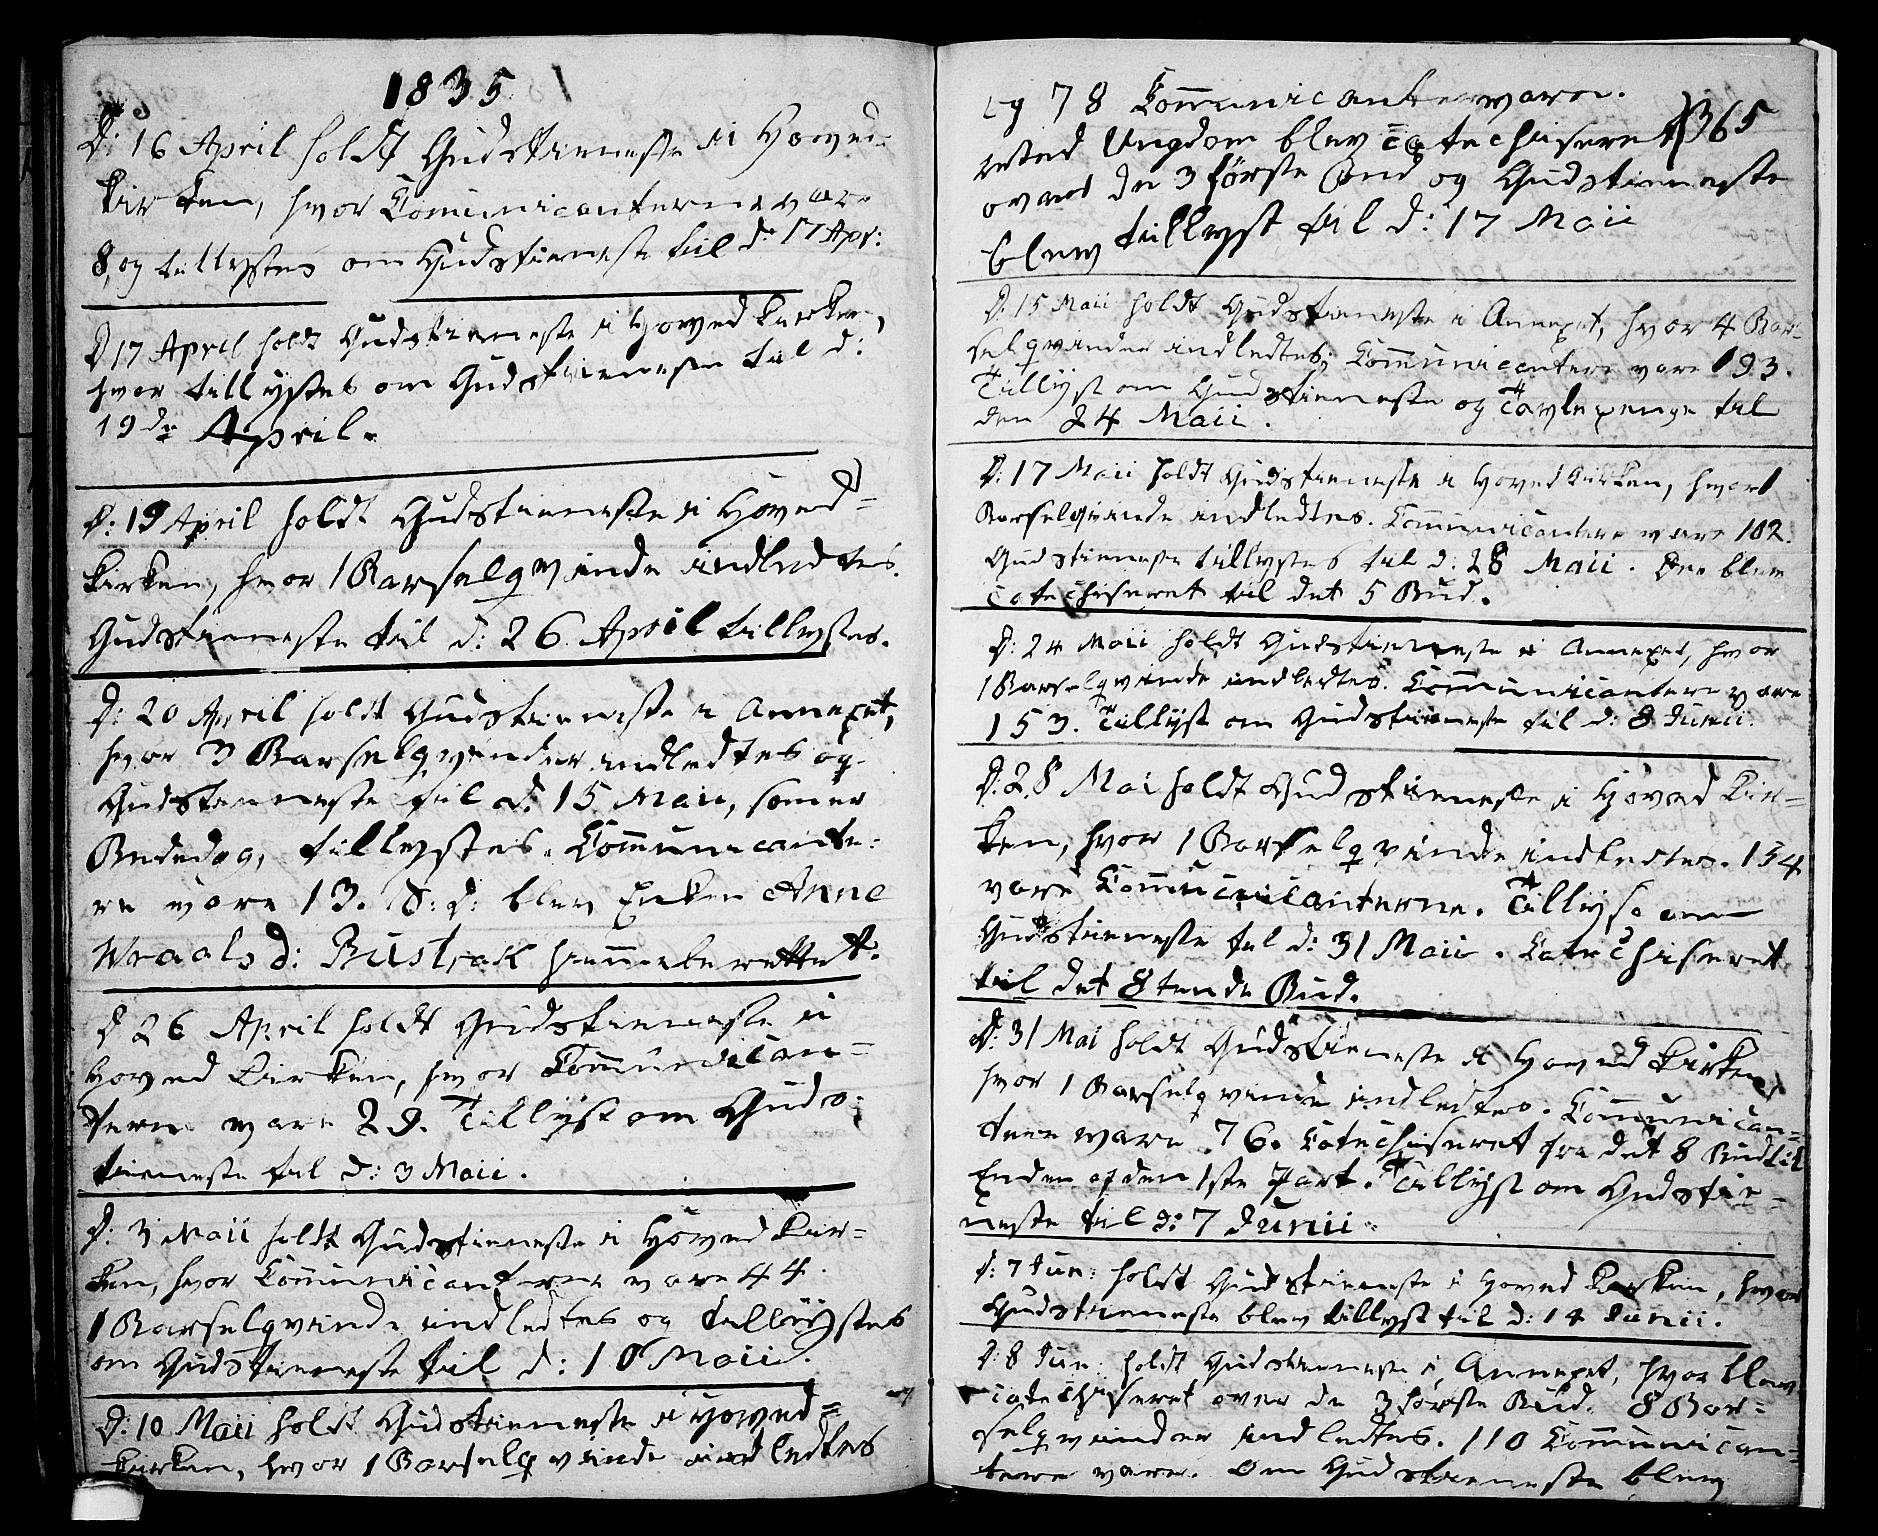 1835
D: 16 April holdt Gudstieneste i Hoved-
kirken, hvor Comunicanterne vare
8, og tillystes om Gudstieneste til d: 17 Apr:
D 17 April holdt Gudstieneste i Hovedkirken,
hvor tillystes om Gudstienesten til d:
19de April.
D: 19 April holdt Gudstieneste i Hoved=
kirken, hvor 1 Barselqvinde indledtes.
Gudstieneste til d: 26 April tillystes.
D: 20 April holdt Gudstieneste i Annexet,
hvor 3 Barselqvinder indledtes og
Gudstieneste til d. 15 Maii, som er
Bededag, tillystes. Communicante-
re vare 13. S: D: blev Enken Anne
Wraals d: Bustrak hiemmeberettet.
D 26 April holdt Gudstieneste i
Hoved Kirken, hvor Communican=
tern vare 29. Tillyst om Guds-
tieneste til d: 3 Maii.
D: 3 Maii holdt Gudstieneste i Hoved Kir=
ken, hvor Communicanterne vare 44.
1 Barselqvinde indledtes og tillystes
om Gudstieneste til d: 10 Maii.
D: 10 Maii holdt Gudstieneste i Hoved=
kirken, hvor 1 Barselqvinde indledtes
og 78 Communicantere vare.
365
med Ungdom blev catechiseret
over de 3 første Bud og Gudstieneste
blev tillyst til d: 17 Maii
D: 15 Maii holdt Gudstieneste i Annexet, hvor 4 Bar-
selqvinder indledtes; Communicantere vare 193.
Tillyst om Gudstieneste og Tavlepenge til
den 24 Maii.
D: 17 Maii holdt Gudstieneste i Hoved Kirken, hvor 1
Barselqvinde indledtes. Communicantere vare 102.
Gudstieneste tillystes til d: 28 Maii. Der blev
catechiseret til det 5 Bud.
D: 24 Maii holdt Gudstieneste i Annexet, hvor
1 Barselqvinde indledtes. Communicantere vare
153. Tillyst om Gudstieneste til d: 8 Junii.
D: 28 Mai holdt Gudstieneste i Hoved Kir=
ken, hvor 1 Barselqvinde indledtes. 154
vare Communicanterne. Tillyst om
Gudstieneste til d: 31 Maii. Catechiseret
til det 8tende Bud.
D: 31 Mai holdt Gudstieneste i Hoved Kirken,
hvor 1 Barselqvinde indledtes. Communican=
tere vare 76. Catechiseret fra det 8 Bud til
Enden af den 1ste Part. Tillyst om Gudstie=
neste til d: 7 Junii.
D: 7 Jun: holdt Gudstieneste i Hoved Kirken, hvor
Gudstieneste blev tillyst til d: 14 Junii.
D: 8 Jun: holdt Gudstieneste i Annexet, hvor blev
catechiseret over de 3 første Bud. 8 Bar=
selqvinder indledtes. 110 Communican=
tere vare. Om Gudstieneste blev